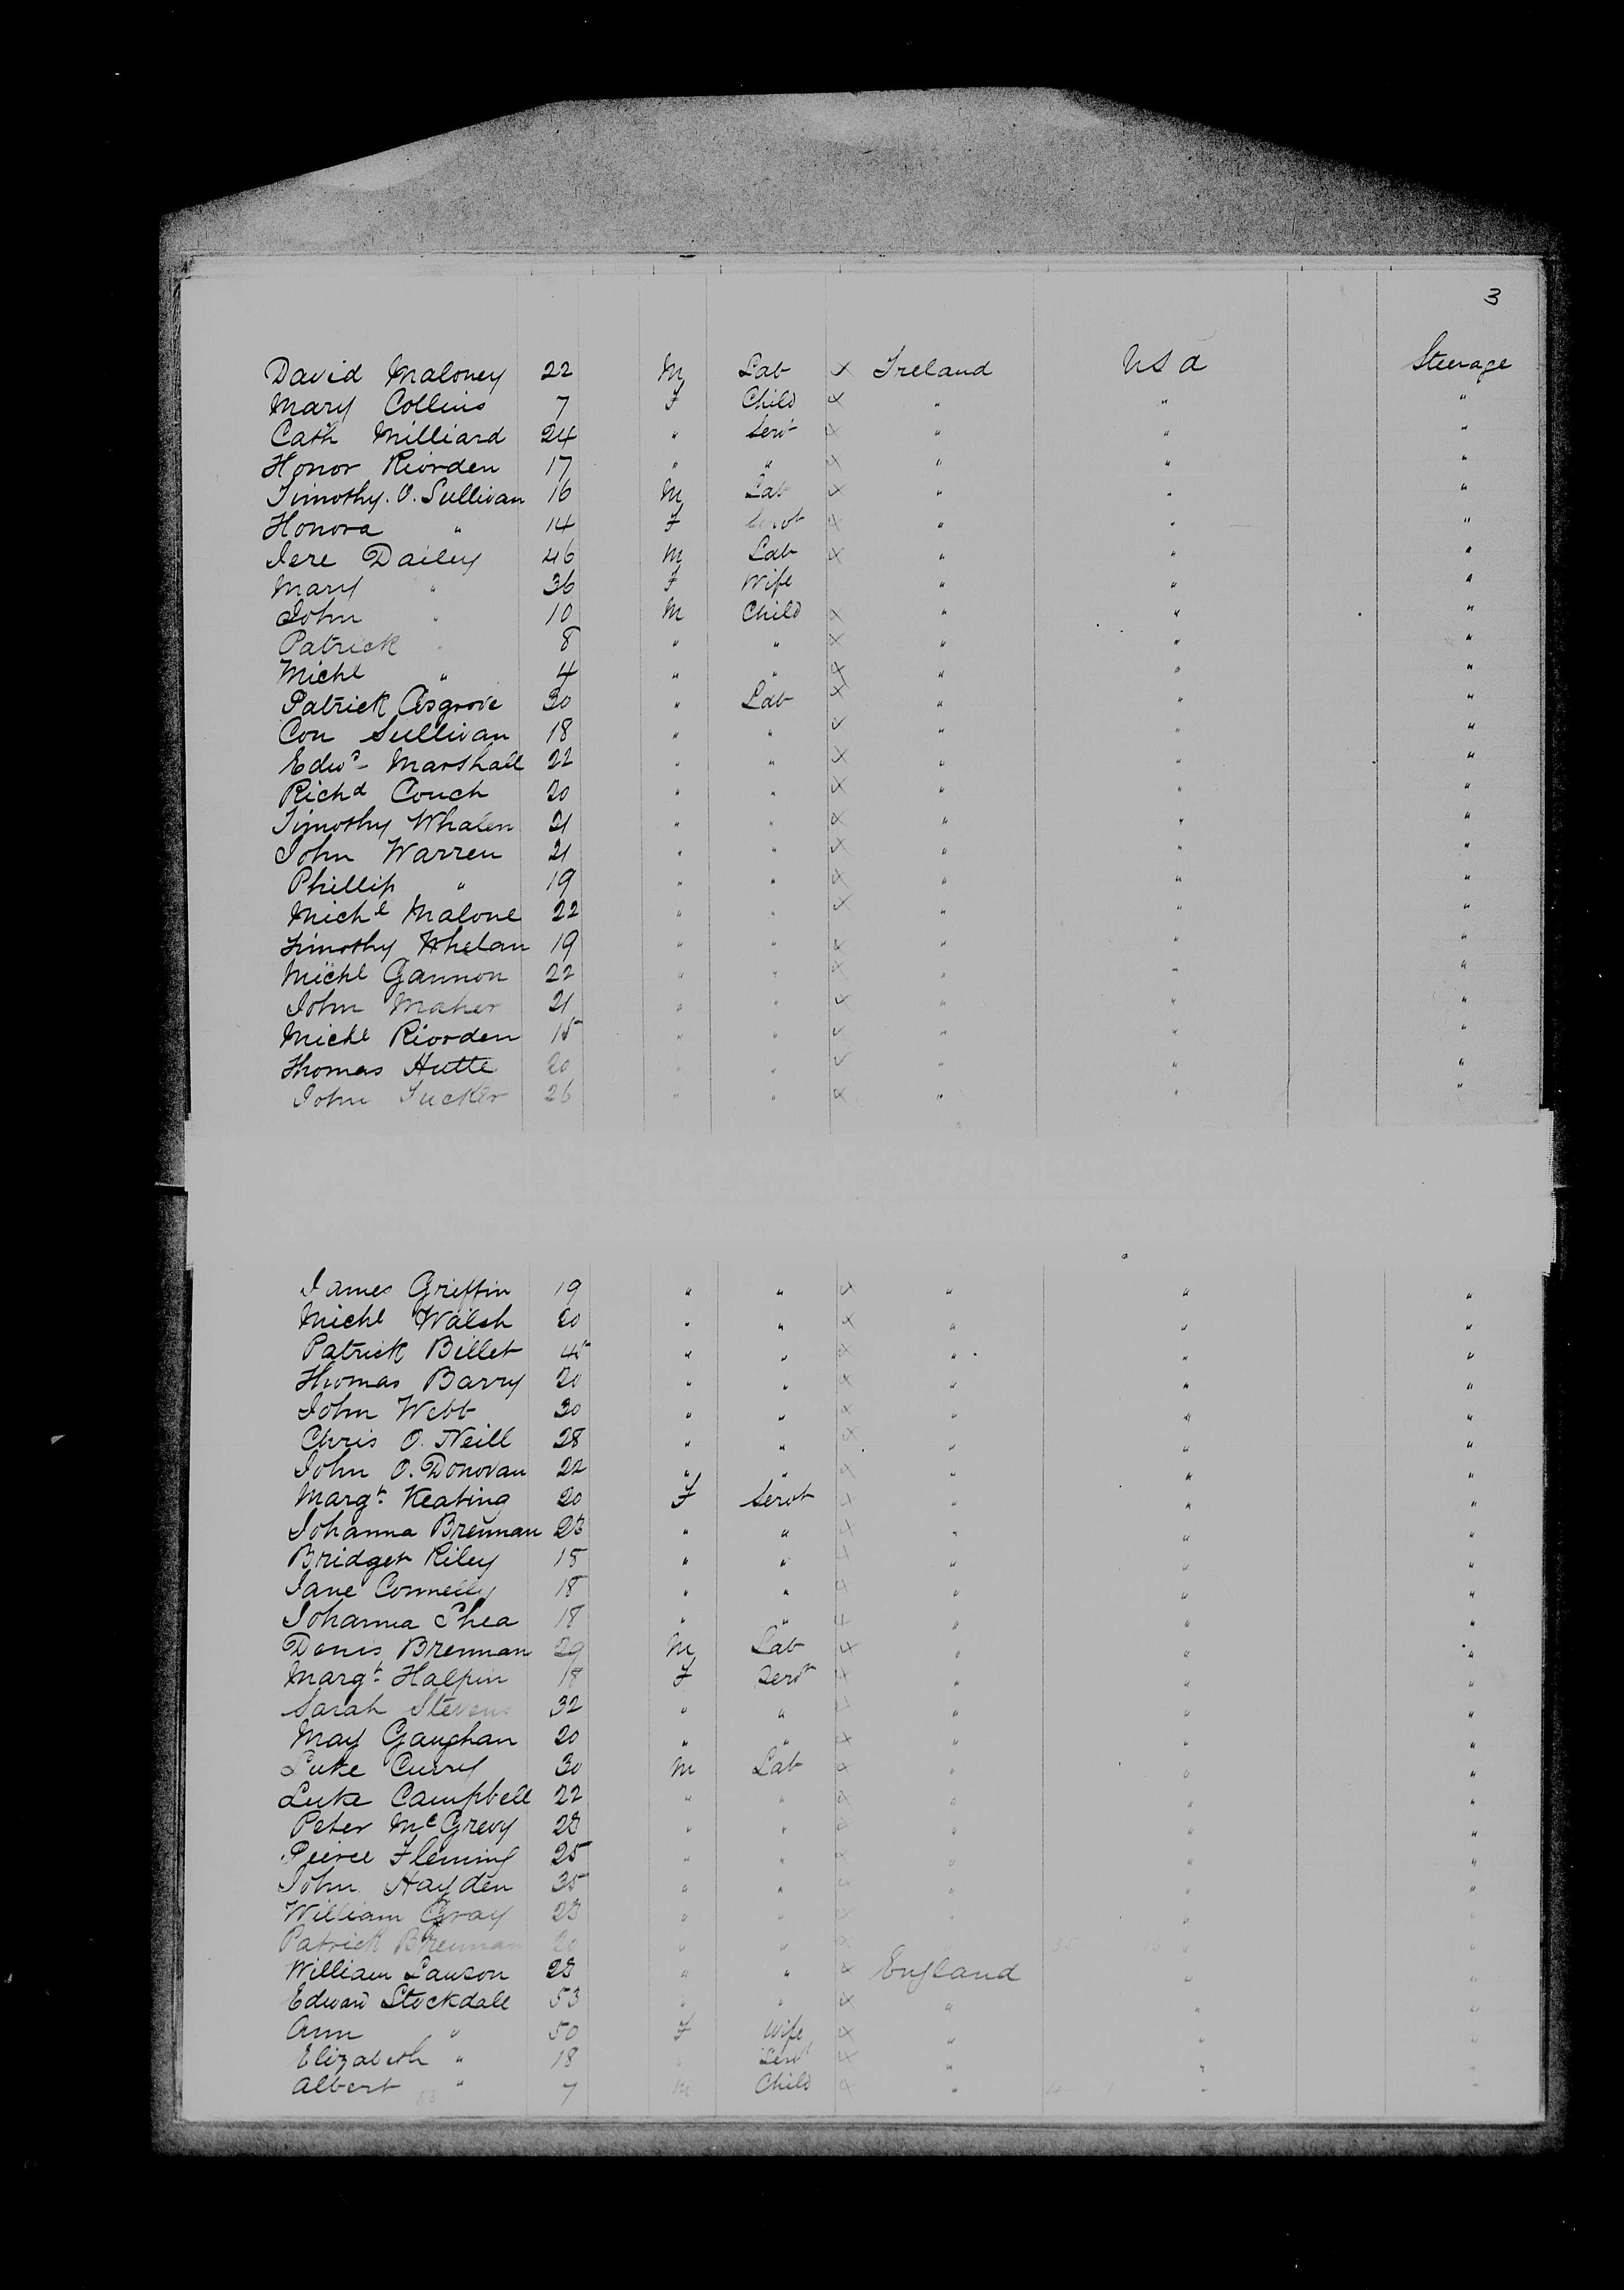 3
David Maloney 22 M Lab x Ireland U S A Steerage
Mary Collins 7 F Child x " " "
Cath Milliard 24 " Servt x " " "
Honor Riorden 17 " " x " " "
Timothy. O. Sullivan 16 M Lab x " " "
Honora " 14 F Servt x " " "
Jere Dailey 46 M Lab x " " "
Mary " 36 F Wife " " "
John " 10 M Child x " " "
Patrick " 8 " " x " " "
Michl " 4 " " x " " "
Patrick Cosgrove 30 " Lab x " " "
Con Sullivan 18 " " x " " "
Edwd Marshall 22 " " x " " "
Richd Couch 20 " " x " " "
Timothy Whalen 21 " " x " " "
John Warren 21 " " x " " "
Phillip " 19 " " x " " "
Michl Malone 22 " " x " " "
Timothy Whelan 19 " " x " " "
Michl Gannon 22 " " x " " "
John Maher 21 " " x " " "
Michl Riorden 15 " " x " " "
Thomas Hutte 20 " " x " " "
John Tucker 26 " " x " " "
James Griffin 19 " " x " " "
Michl Walsh 20 " " x " " "
Patrick Billet 45 " " x " " "
Thomas Barry 20 " " x " " "
John Webb 30 " " x " " "
Chris O. Neill 28 " " x " " "
John O. Donovan 22 " " x " " "
Margt Keating 20 F Servt x " " "
Johanna Brennan 23 " " x " " "
Bridget Riley 18 " " x " " "
Jane Connelly 18 " " x " " "
Johanna Shea 18 " " x " " "
Denis Brennan 29 M Lab x " " "
Margt Halpin 18 F Servt x " " "
Sarah Stevens 32 " " x " " "
May Gaughan 20 " " x " " "
Luke Curry 30 M Lab x " " "
Luke Campbell 22 " " x " " "
Peter McGrevy 28 " " x " " "
Pierce Fleming 25 " " x " " "
John Hayden 35 " " x " " "
William Gray 23 " " x " " "
Patrick Brennan 20 " " x " "
William Lawson 23 " " x England " "
Edward Stockdale 53 " " x " " "
Ann " 50 F Wife x " " "
Elizabeth " 18 " Servt x " " "
Albert " 7 M Child x " " "